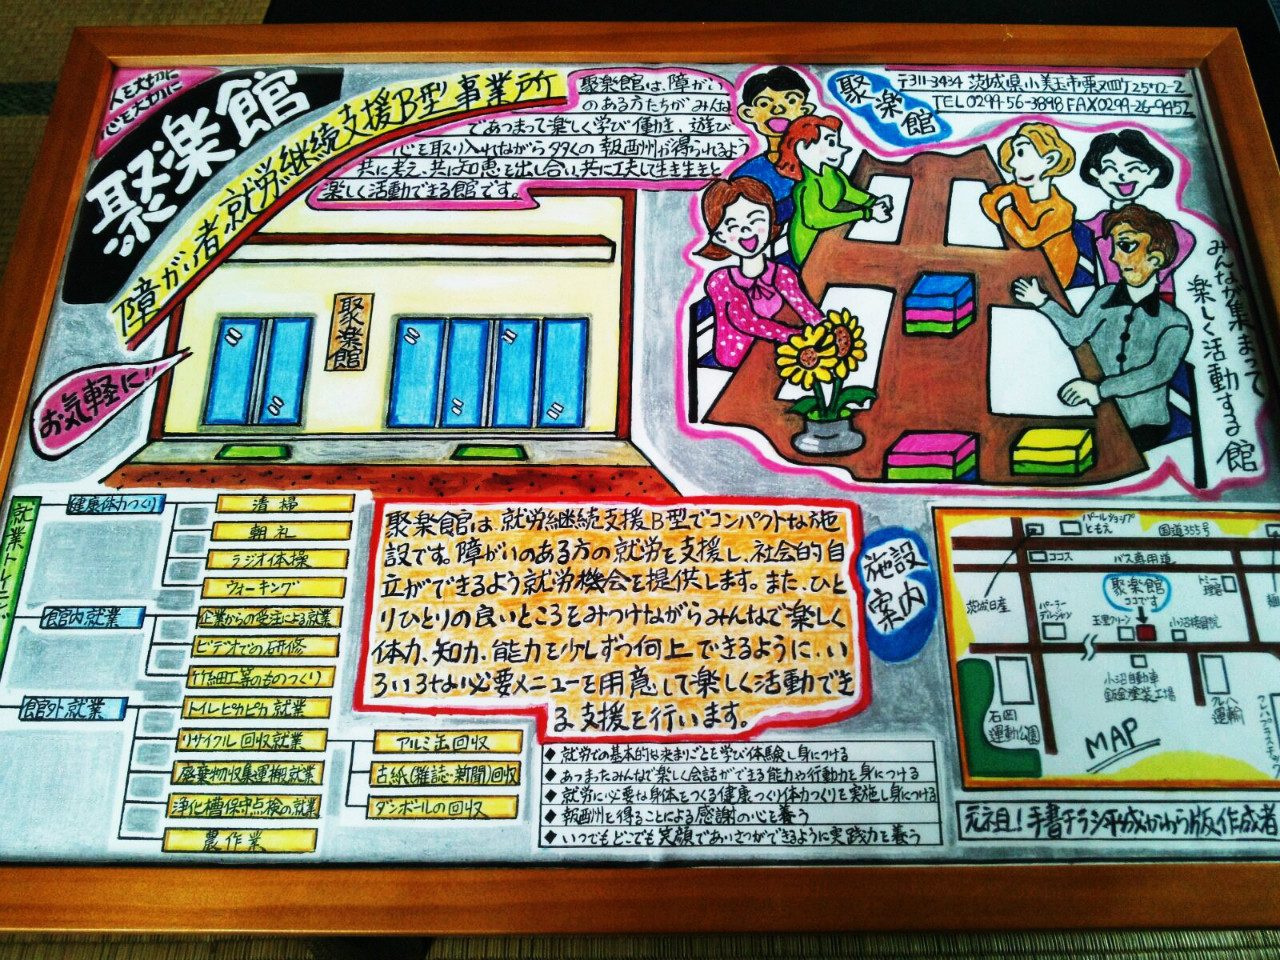 人を大切に
心を大切に
聚楽館
障がい者就労継続支援B型事業所
聚楽館は、障がい
のある方たちがみんな
であつまって楽しく学び働き、遊び
心を取り入れながら多くの報酬が得られるよう
共に考え、共に知恵を出し合い、共に工夫して生き生きと
楽しく活動できる館です。
聚楽館
〒311-3434 茨城県小美玉市栗又四ケ2572-2
TEL0299-56-3898 FAX0299-26-9452
みんなが集まって
楽しく活動する館
お気軽に!!
聚楽館
就業トレーニング
健康体力づくり
清掃
朝礼
ラジオ体操
ウォーキング
館内就業
企業からの受注による就業
ビデオでの研修
竹細工等のものづくり
館外就業
トイレピカピカ就業
リサイクル回収就業
アルミ缶回収
古紙(雑誌・新聞)回収
ダンボールの回収
廃棄物収集運搬就業
浄化槽保守点検の就業
農作業
聚楽館は、就労継続支援B型でコンパクトな施
設です。障がいのある方の就労を支援し、社会的自
立ができるよう就労機会を提供します。また、ひと
りひとりの良いところをみつけながらみんなで楽しく
体力、知力、能力を少しずつ向上できるように、い
ろいろな必要メニューを用意して楽しく活動でき
る支援を行います。
施設
案内
◆就労での基本的な決まりごとを学び体験し身につける
◆あつまったみんなで楽しく会話ができる能力や行動力を身につける
◆就労に必要な身体をつくる健康づくり体力づくりを実施し身につける
◆報酬を得ることによる感謝の心を養う
◆いつでもどこでも笑顔であいさつができるように実践力を養う
パールショップ
ともえ
国道355号
ココス
バス専用道
茨城日産
聚楽館
ココです
パーラー
玉里クリーン
小沼自動車
鈑金塗装工場
クレハ
運輸
石岡
運動公園
MAP
元祖!手書チラシ平成かわら版作成者